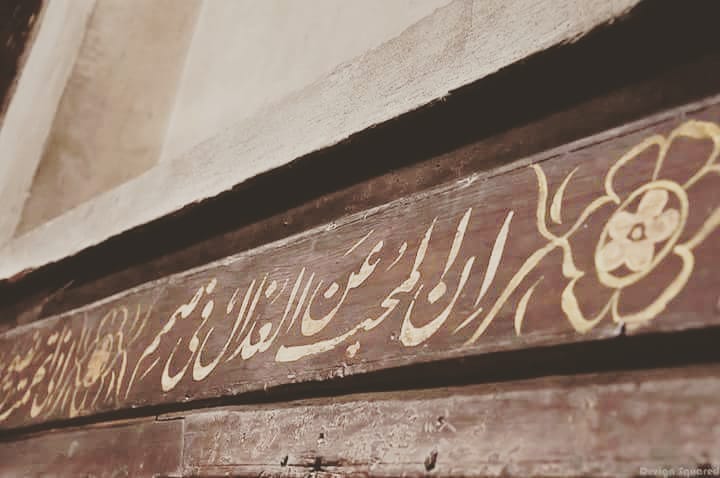 ان المحب عن العذال في صمم
Design Squared